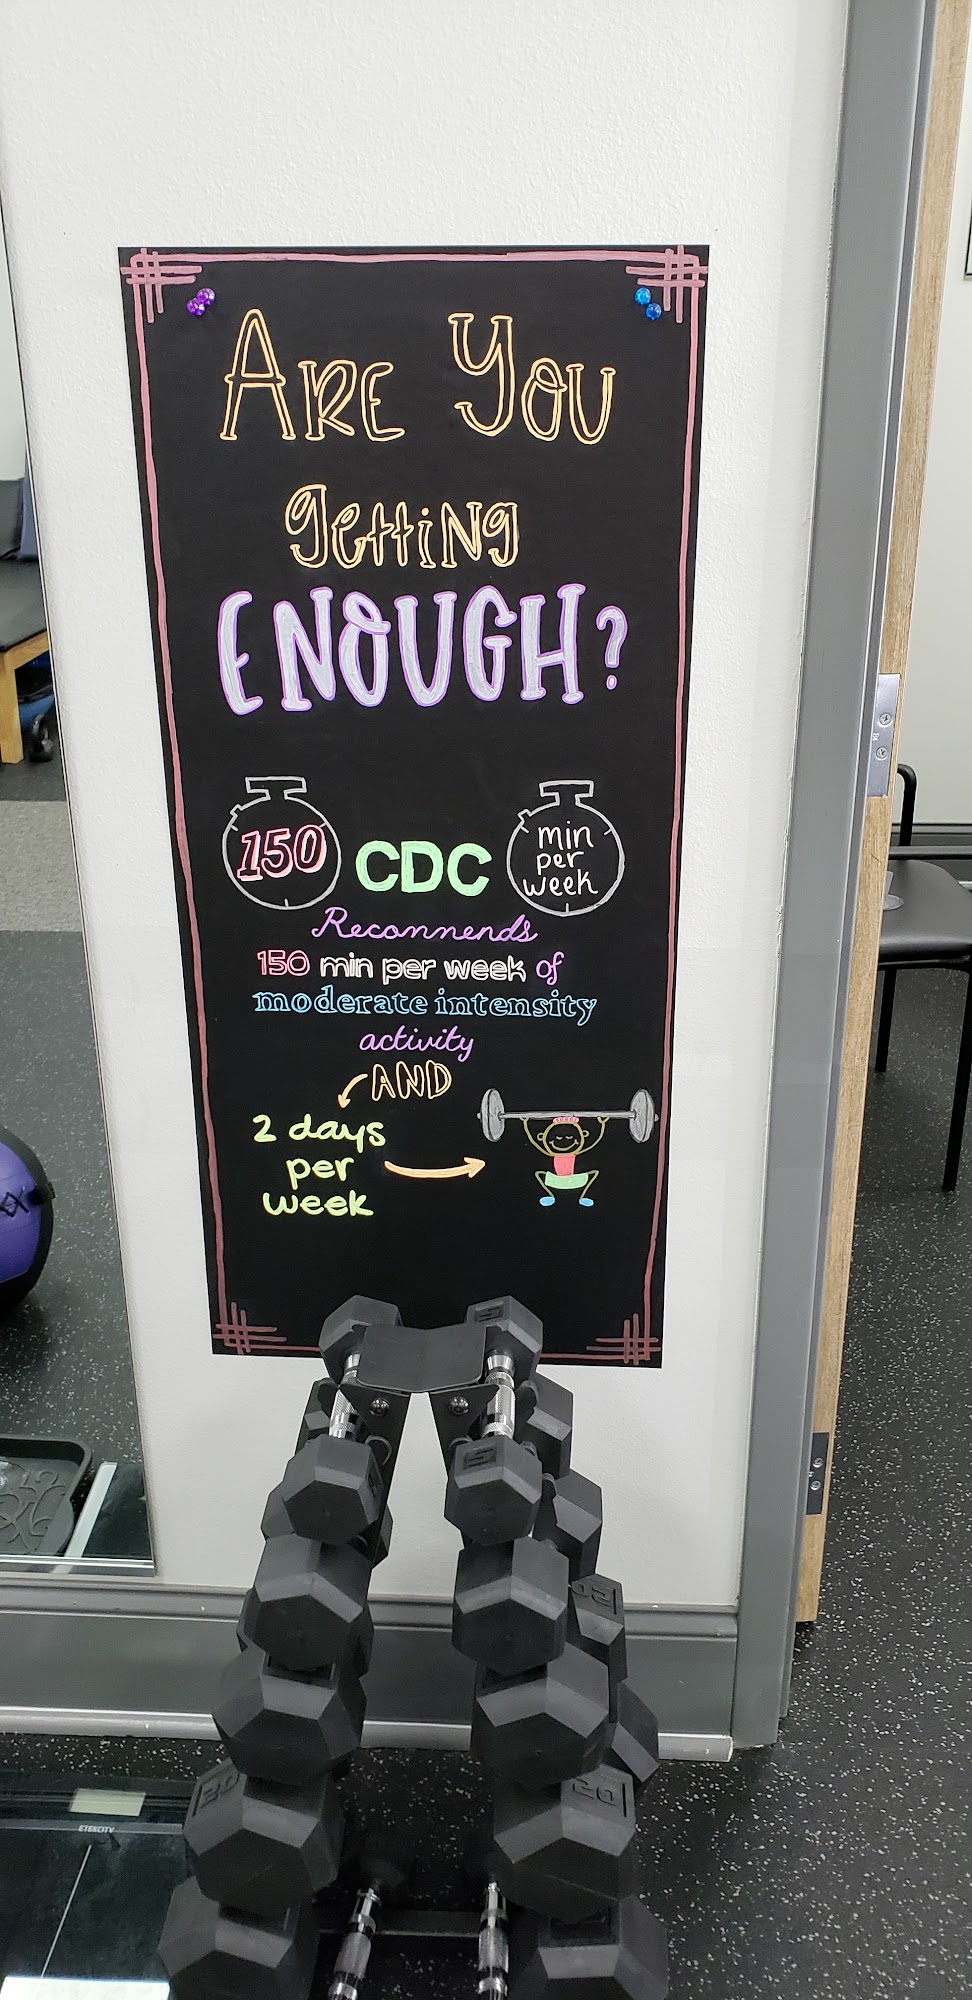 ARE YOU
getting
ENOUGH?
150
CDC
min
per
week
Recommends
150 min per week of
moderate intensity
activity
AND
2 days
per
week
5
5
20
20
20
ETEKCITY